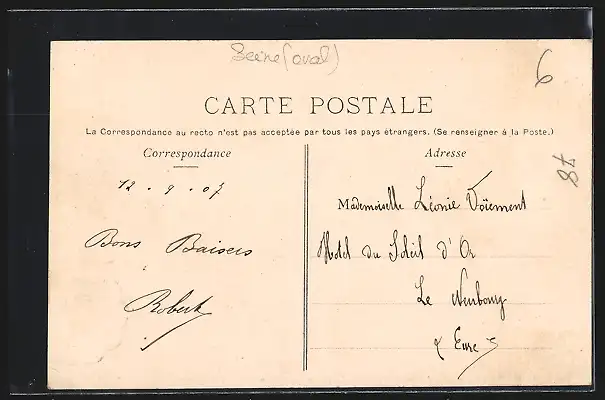 Seine (aval)
6
CARTE POSTALE
La Correspondance au recto n'est pas acceptée par tous les pays étrangers. (Se renseigner à la Poste.)
Correspondance
Adresse
78
12 . 9 . 07
Mademoiselle Léonie Voïement
Bons Baisers
Hotel du Soleil d'Or
Robert
Le Neubourg
Eure